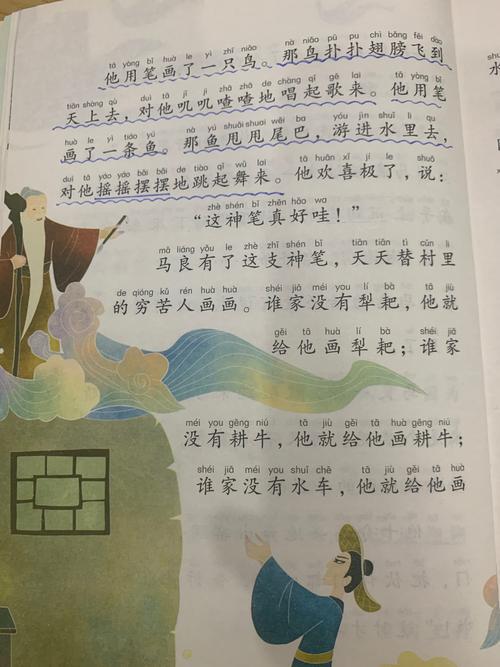 tā yòng bǐ huà le yì zhī niǎo nà niǎo pū pū chì bǎng fēi dào
他用笔画了一只鸟。那鸟扑扑翅膀飞到
tiān shàng qù duì tā jī jī zhā zhā de chàng qǐ gē lái tā yòng bǐ
天上去，对他叽叽喳喳地唱起歌来。他用笔
huà le yì tiáo yú nà yú shuǎi shuai wěi ba yóu jìn shuǐ li qù
画了一条鱼。那鱼甩甩尾巴，游进水里去，
duì tā yáo yáo bǎi bǎi de tiào qǐ wǔ lai tā huān xǐ jí le shuō
对他摇摇摆摆地跳起舞来。他欢喜极了，说：
zhè shén bǐ zhēn hǎo wa
“这神笔真好哇！”
mǎ liáng yǒu le zhè zhī shén bǐ tiān tiān tì cūn li
马良有了这支神笔，天天替村里
de qióng kǔ rén huà huà shéi jiā méi yǒu lí pá tā jiù
的穷苦人画画。谁家没有犁耙，他就
gěi tā huà lí pá shéi jiā
给他画犁耙；谁家
méi yǒu gēng niú tā jiù gěi tā huà gēng niú
没有耕牛，他就给他画耕牛；
shéi jiā méi yǒu shuǐ chē tā jiù gěi tā huà
谁家没有水车，他就给他画